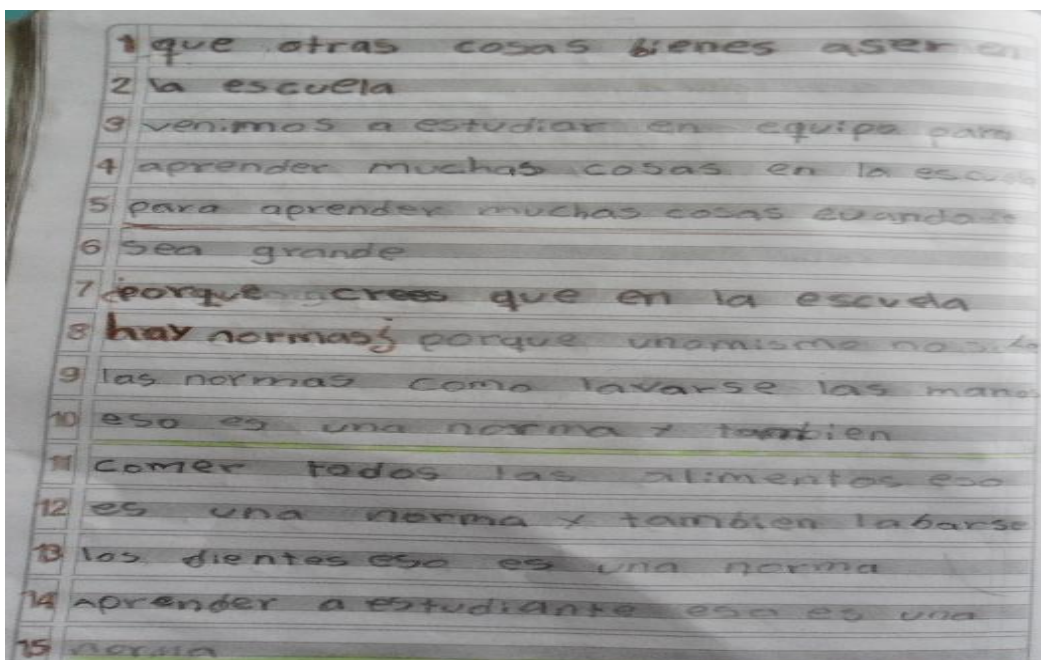 1 que otras cosas bienes aser en
2 la escuela
3 venimos a estudiar en equipo para
4 aprender muchas cosas en la escuela
5 para aprender muchas cosas cuando
6 sea grande
7 porque crees que en la escuela
8 hay normas porque unomismo no
9 las normas como lavarse las manos
10 eso es una norma y tambien
11 comer todos las alimentos eso
12 es una norma y tambien labarse
13 los dientes eso es una norma
14 Aprender a estudiante eso es una
15 norma